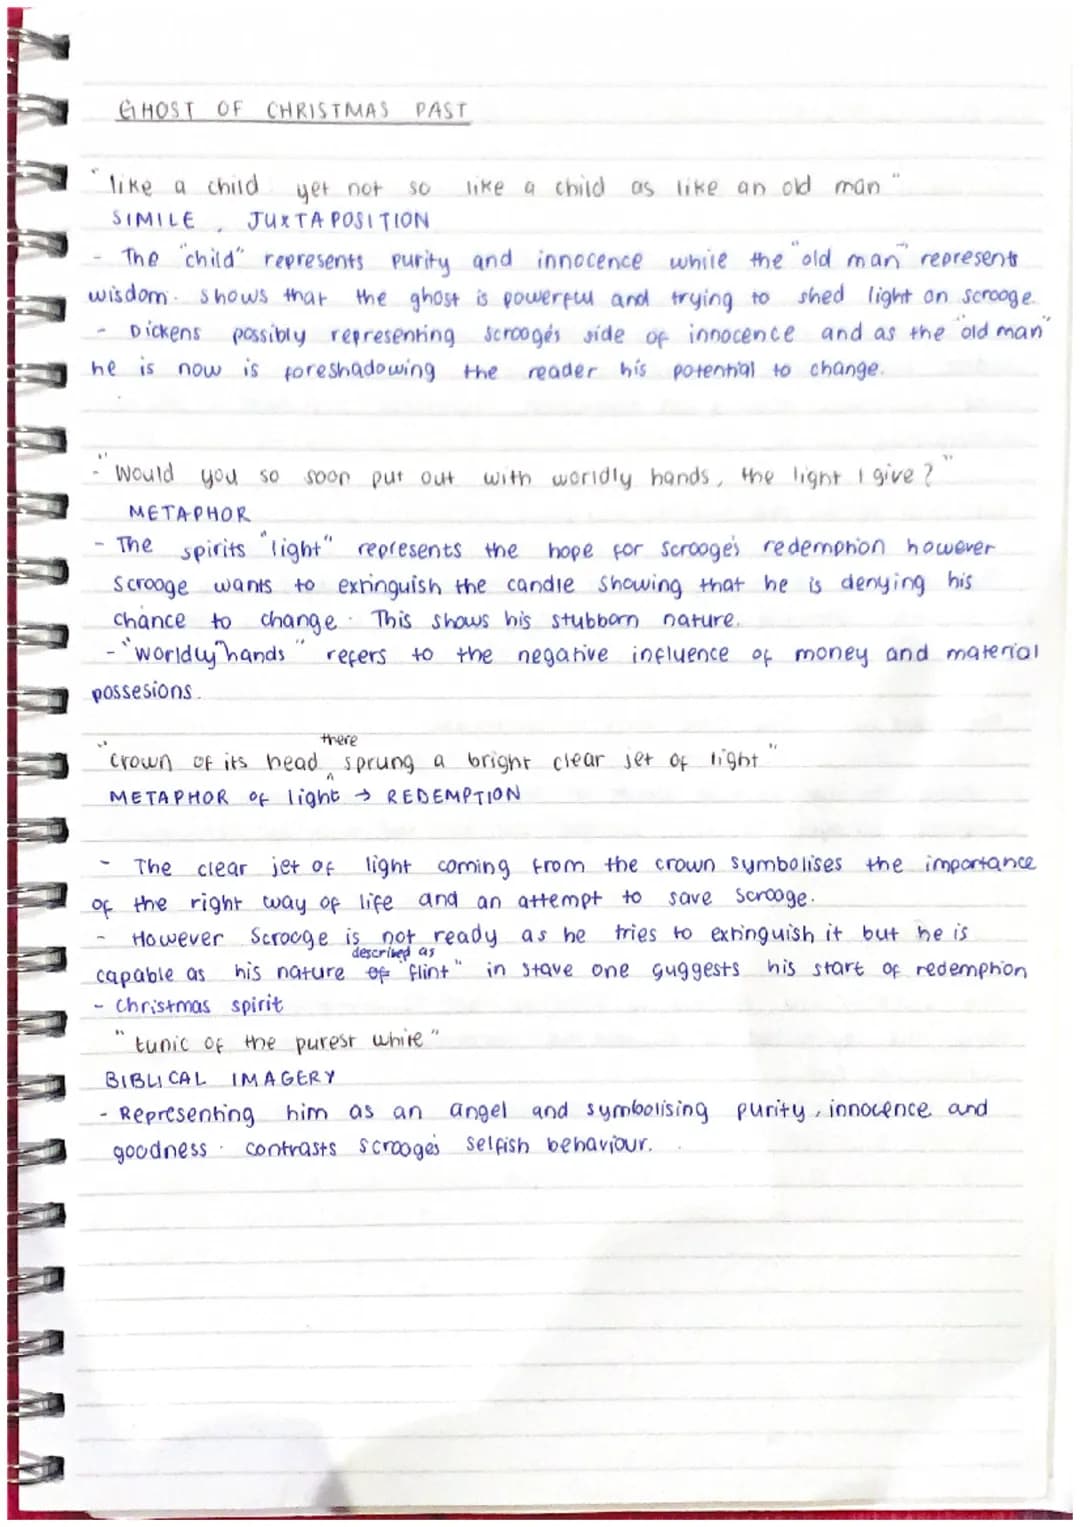 GHOST OF CHRISTMAS PAST
"like a child yet not so like a child as like an old man"
SIMILE, JUXTAPOSITION
- The "child" represents purity and innocence while the "old man" represents
wisdom. Shows that the ghost is powerful and trying to shed light on scrooge.
- Dickens possibly representing Scrooge's side of innocence and as the "old man"
he is now is foreshadowing the reader his potential to change.
- "Would you so soon put out with worldly hands, the light I give?"
METAPHOR
- The spirits "light" represents the hope for Scrooge's redemption however
Scrooge wants to extinguish the candle showing that he is denying his
chance to change. This shows his stubborn nature.
- "worldly hands" refers to the negative influence of money and material
possesions.
there
"crown of its head sprung a bright clear jet of light"
METAPHOR of light → REDEMPTION
- The clear jet of light coming from the crown symbolises the importance
of the right way of life and an attempt to save Scrooge.
- However Scrooge is not ready as he tries to extinguish it but he is
described as
capable as his nature of "flint" in stave one suggests his start of redemption
- Christmas spirit
"tunic of the purest white"
BIBLICAL IMAGERY
- Representing him as an angel and symbolising purity, innocence and
goodness. contrasts scrooge's selfish behaviour.